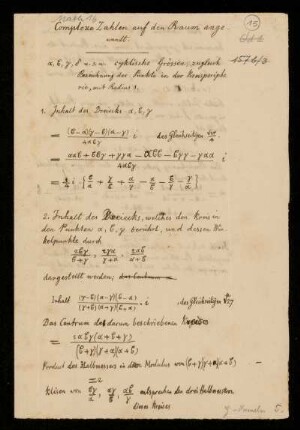 Math 14
13
Complexe Zahlen auf den Raum ange
wandt.
157b/3
α, β, γ, δ u.s.w. cyklische Grössen, zugleich
Bezeichnung der Punkte in der Kreisperiphe
rie, mit Radius 1.
1. Inhalt des Dreiecks α, β, γ
= (β−α)(γ−β)(α−γ) / 4αβγ i des Gleichseitigen
= ααβ + ββγ + γγα − αββ − βγγ − γαα / 4αβγ i
= 1/4 i · {β/α + γ/β + α/γ − α/β − β/γ − γ/α}
2. Inhalt des Dreiecks, welches den Kreis in
den Punkten α, β, γ berührt, und dessen Win
kelpunkte durch
2βγ/β+γ, 2γα/γ+α, 2αβ/α+β
dargestellt werden,
Inhalt (γ−β)(α−γ)(β−α) / (γ+β)(α+γ)(β+α) · i, des gleichseitigen
Das Centrum des darum beschriebenen Kreises
= 2αβγ(α+β+γ) / (β+γ)(γ+α)(α+β)
Product des Halbmessers in den Modulus von (β+γ)(γ+α)(α+β)
= 2
βγ/α, αγ/β, αβ/γ entsprechen
eines Kreises